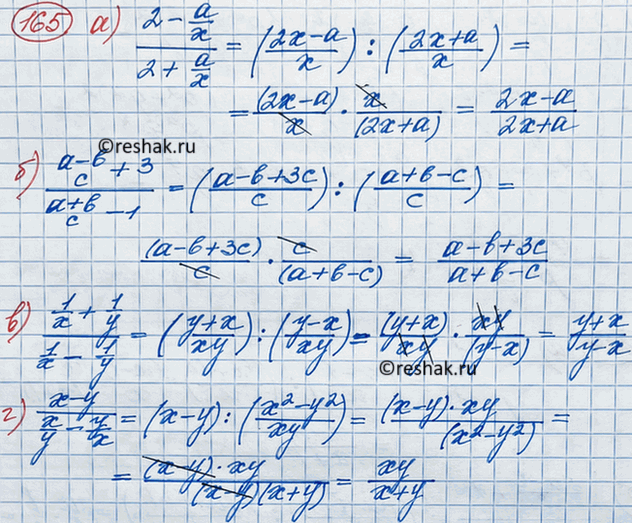 165 а) (2 - a/x)/(2 + a/x) = ((2x-a)/x) : ((2x+a)/x) =
= (2x-a)/x · x/(2x+a) = (2x-a)/(2x+a)
©reshak.ru
б) ((a-b)/c + 3)/((a+b)/c - 1) = ((a-b+3c)/c) : ((a+b-c)/c) =
(a-b+3c)/c · c/(a+b-c) = (a-b+3c)/(a+b-c)
в) (1/x + 1/y)/(1/x - 1/y) = ((y+x)/xy) : ((y-x)/xy) = (y+x)/xy · xy/(y-x) = (y+x)/(y-x)
©reshak.ru
г) (x-y)/(x/y - y/x) = (x-y) : ((x²-y²)/xy) = (x-y)·xy/(x²-y²) =
= (x-y)·xy/(x-y)(x+y) = xy/(x+y)